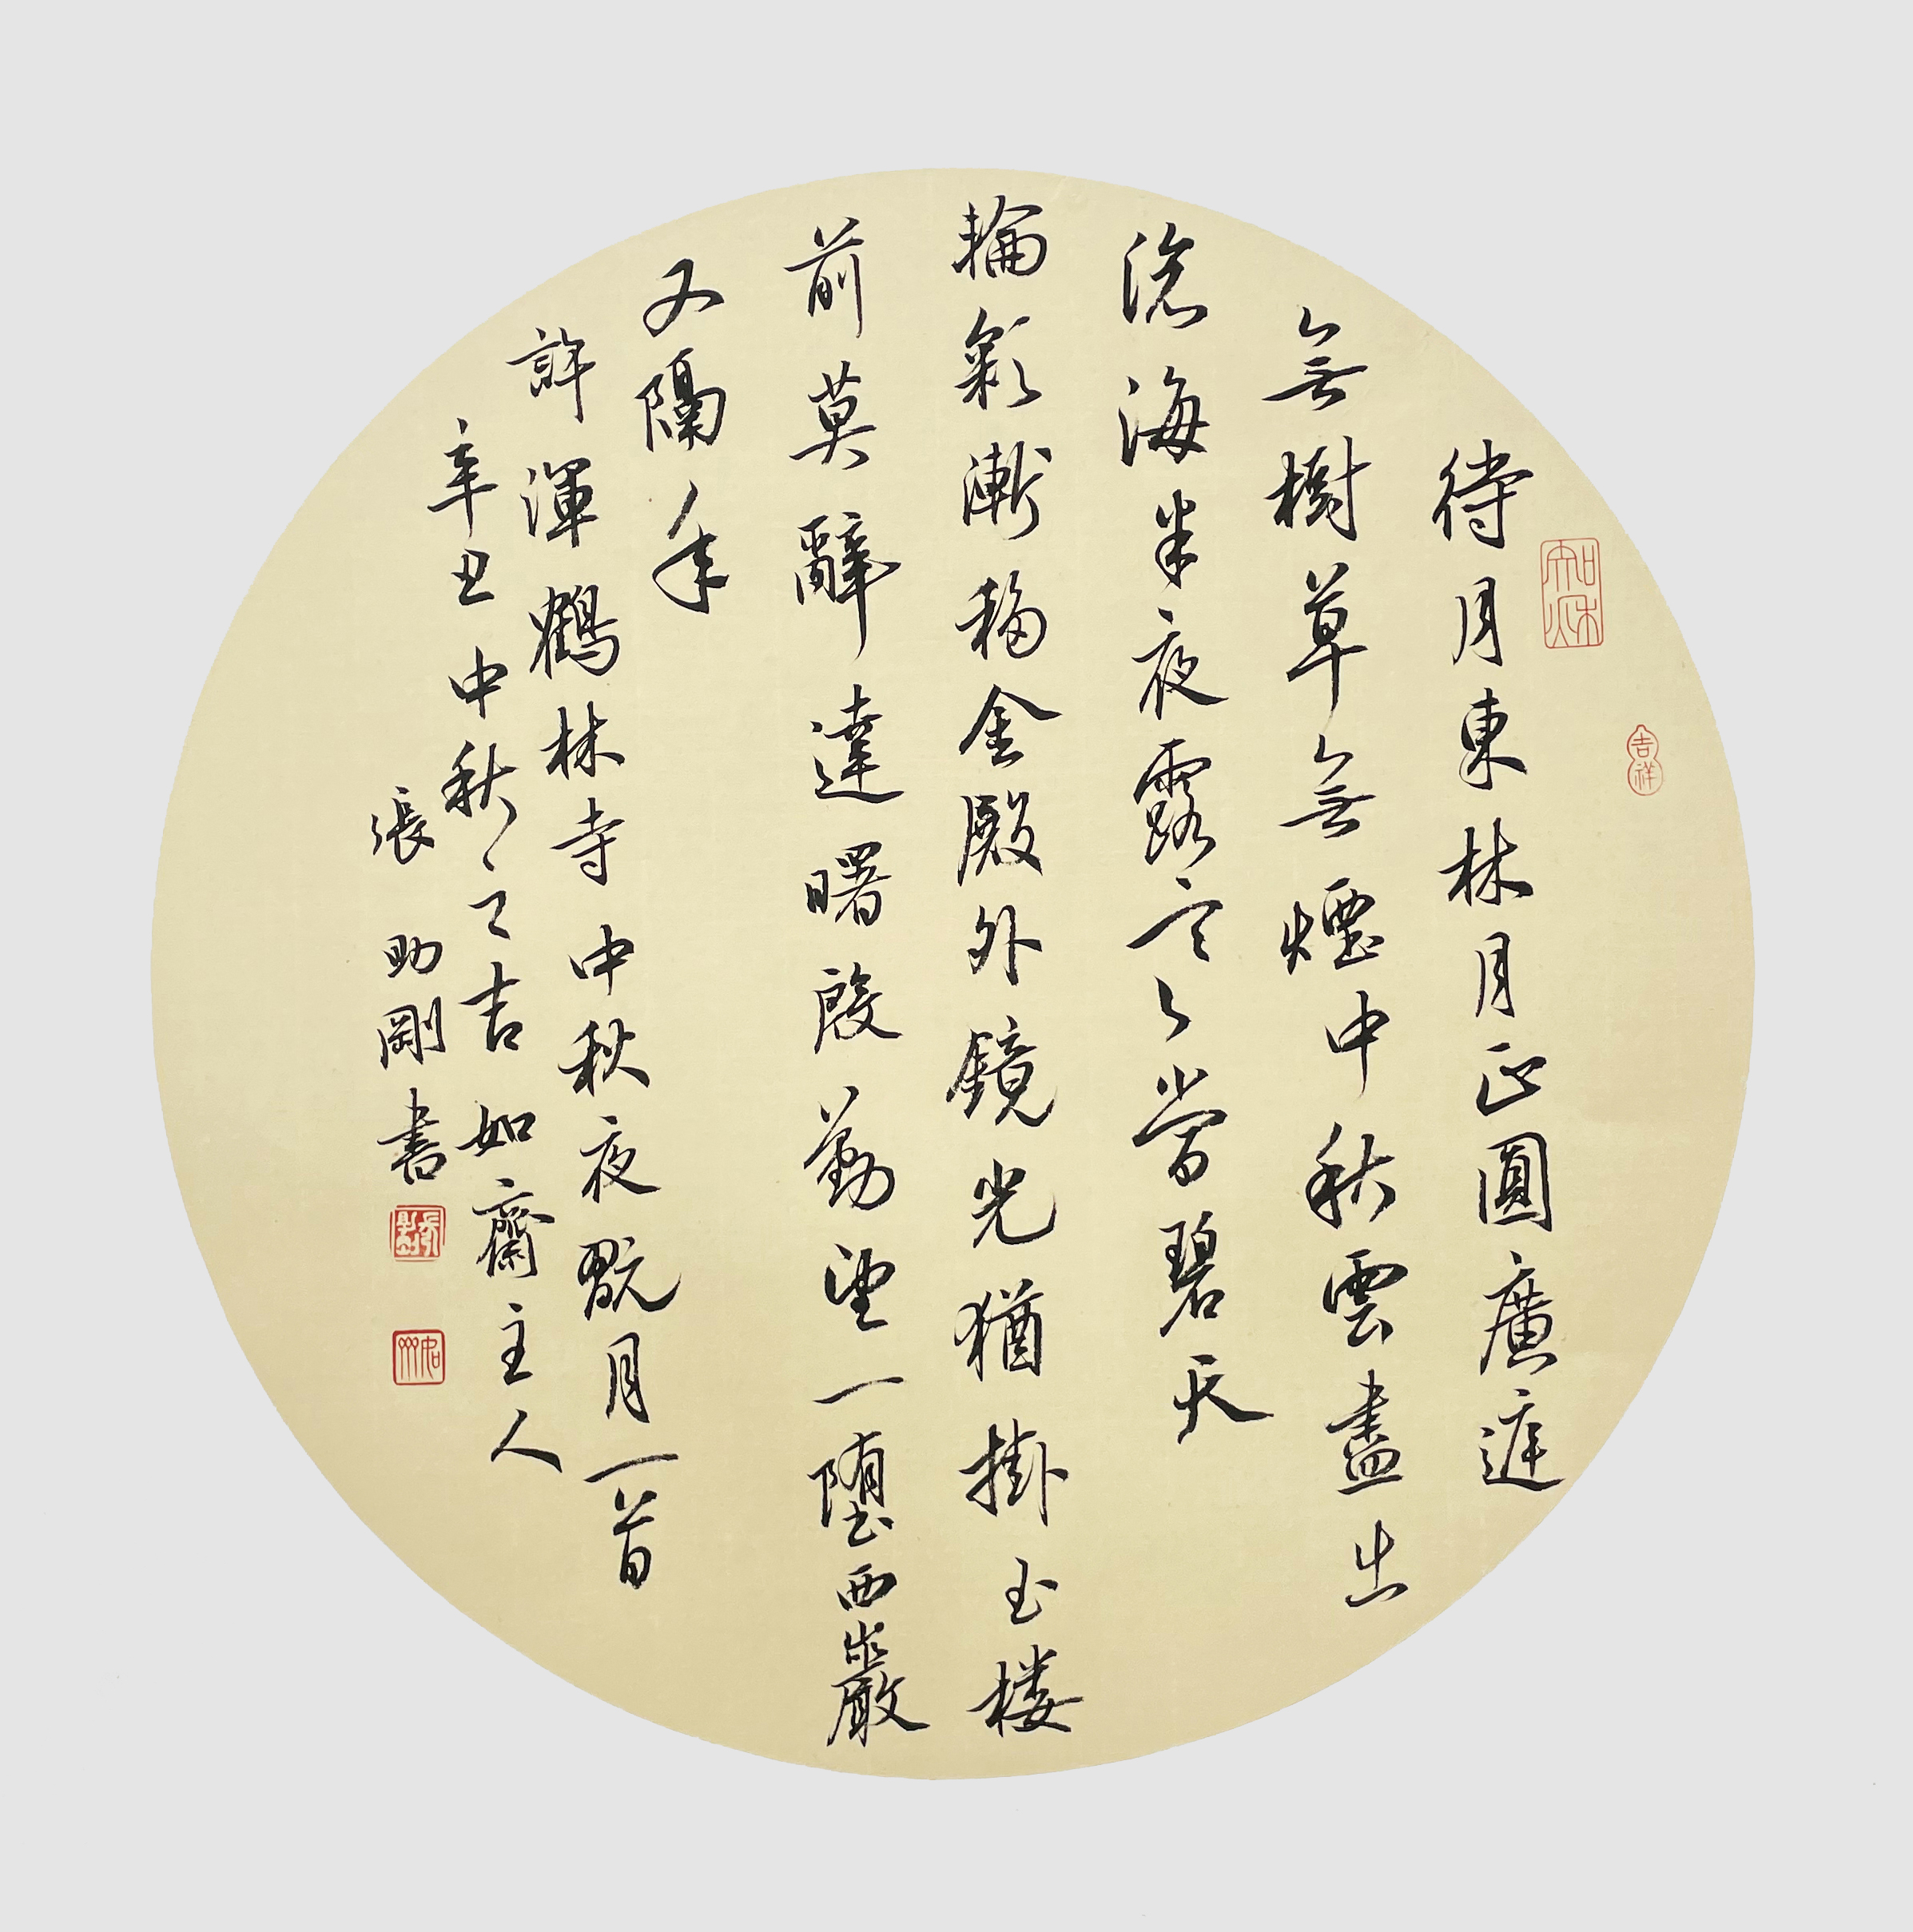 待月東林月正圓廣庭
無樹草無煙中秋雲盡出
滄海半夜露寒當碧天
輪彩漸移金殿外鏡光猶掛玉楼
前莫辭達曙殷勤望一墮西巖
又隔年
許渾鶴林寺中秋夜翫月一首
辛丑中秋之吉如齋主人
張助剛書
吉祥